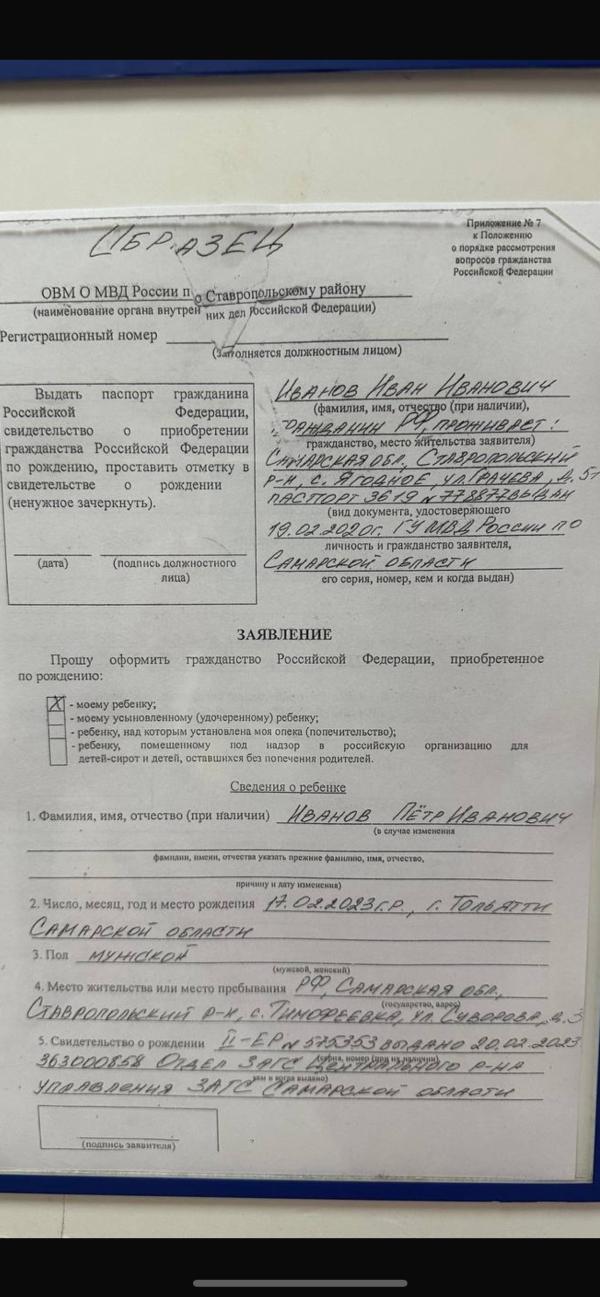 ОБРАЗЕЦ
Приложение № 7
к Положению
о порядке рассмотрения
вопросов гражданства
Российской Федерации
ОВМ О МВД России п о Ставропольскому району
(наименование органа внутрен них дел Российской Федерации)
Регистрационный номер
(заполняется должностным лицом)
Выдать паспорт гражданина
Российской Федерации,
свидетельство о приобретении
гражданства Российской Федерации
по рождению, проставить отметку в
свидетельстве о рождении
(ненужное зачеркнуть).
(дата) (подпись должностного
лица)
ИВАНОВ ИВАН ИВАНОВИЧ
(фамилия, имя, отчество (при наличии),
ГРАЖДАНИН РФ, ПРОЖИВАЕТ:
гражданство, место жительства заявителя)
САМАРСКАЯ ОБЛ., СТАВРОПОЛЬСКИЙ
Р-Н, С. ЯГОДНОЕ, УЛ. ГРАЧЕВА, Д. 51
ПАСПОРТ 3619 N 778877 ВЫДАН
(вид документа, удостоверяющего
19.02.2020г. ГУ МВД РОССИИ ПО
личность и гражданство заявителя,
САМАРСКОЙ ОБЛАСТИ
его серия, номер, кем и когда выдан)
ЗАЯВЛЕНИЕ
Прошу оформить гражданство Российской Федерации, приобретенное
по рождению:
X - моему ребенку;
- моему усыновленному (удочеренному) ребенку;
- ребенку, над которым установлена моя опека (попечительство);
- ребенку, помещенному под надзор в российскую организацию для
детей-сирот и детей, оставшихся без попечения родителей.
Сведения о ребенке
1. Фамилия, имя, отчество (при наличии) ИВАНОВ ПЁТР ИВАНОВИЧ
(в случае изменения
фамилии, имени, отчества указать прежние фамилию, имя, отчество,
причину и дату изменения)
2. Число, месяц, год и место рождения 17.02.2023 Г.Р., Г. ТОЛЬЯТТИ
САМАРСКОЙ ОБЛАСТИ
3. Пол МУЖСКОЙ
(мужской, женский)
4. Место жительства или место пребывания РФ, САМАРСКАЯ ОБЛ.,
(государство, адрес)
СТАВРОПОЛЬСКИЙ Р-Н, С. ТИМОФЕЕВКА, УЛ. СУВОРОВА, Д. 3
5. Свидетельство о рождении II-ЕР N 575353 ВЫДАНО 20.02.2023
(серия, номер (при их наличии)
363000858 ОТДЕЛ ЗАГС ЦЕНТРАЛЬНОГО Р-НА
кем и когда выдано)
УПРАВЛЕНИЯ ЗАГС САМАРСКОЙ ОБЛАСТИ
(подпись заявителя)